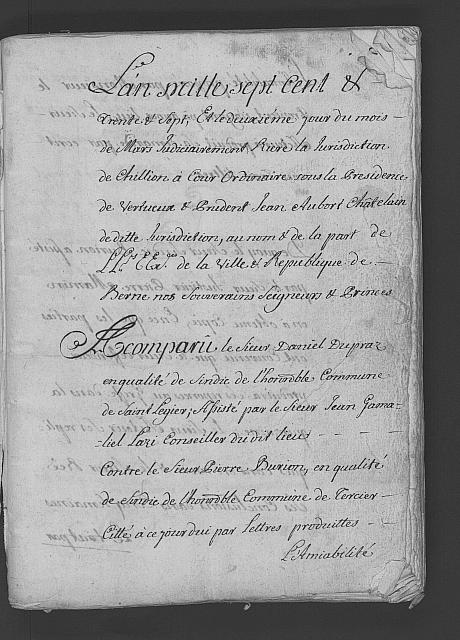 L'an mille sept cent &
trente & sept, Et le deuxieme jour du mois
de Mars Judiciairement Riere la Jurisdiction
de Chillion à Cour Ordinaire sous la Presidence
de Vertueux & Prudent Jean Aubort Chatelain
de ditte Jurisdiction, au nom & de la part de
de la Ville & Republique de
Berne nos Souverains Seigneurs & Princes
A Comparu le Sieur Daniel Dupraz
en qualité de Sindic de l'honorble Commune
de Saint Legier; Assisté par le Sieur Jean Gama-
-liel Conseiller du dit lieu
Contre le Sieur Pierre Burion, en qualité
de Sindic de l'honorble Commune de Tercier
Citté à ce jourdui par Lettres produittes
L'Amiabilité